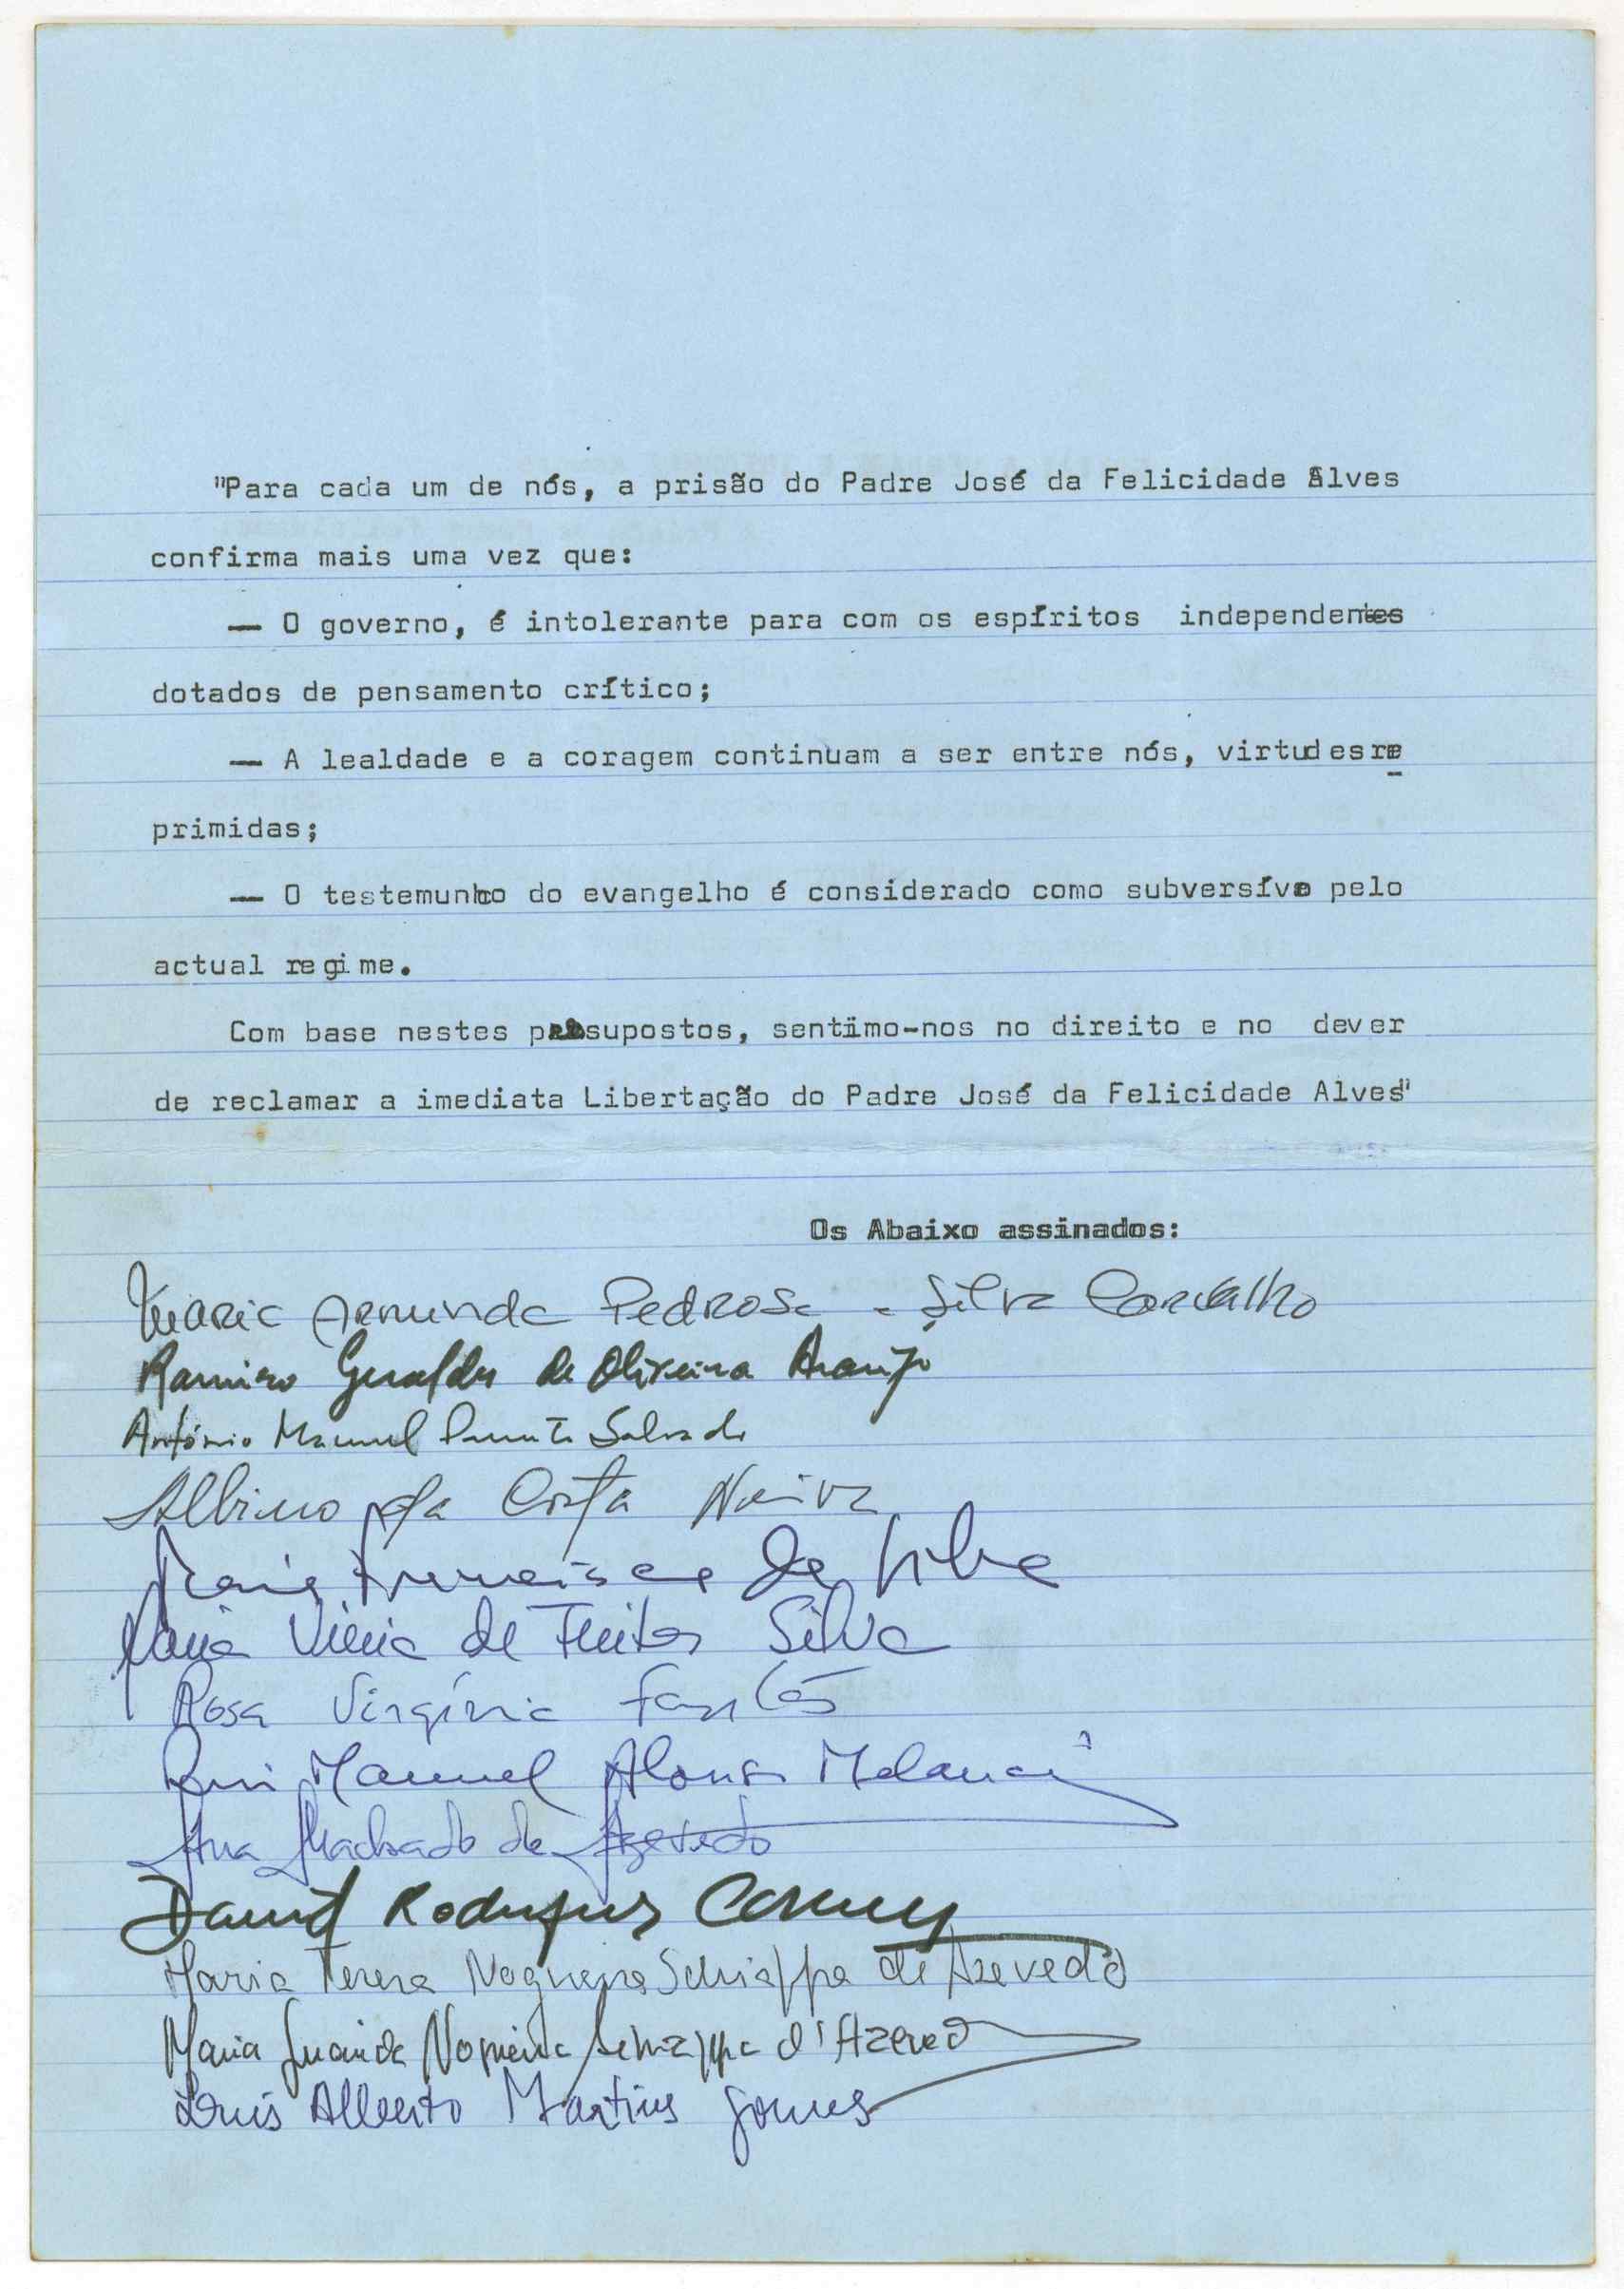 "Para cada um de nós, a prisão do Padre José da Felicidade Alves
confirma mais uma vez que:
— O governo, é intolerante para com os espíritos independentes
dotados de pensamento crítico;
— A lealdade e a coragem continuam a ser entre nós, virtudes re
primidas;
— O testemunho do evangelho é considerado como subversívo pelo
actual regime.
Com base nestes pressupostos, sentimo-nos no direito e no dever
de reclamar a imediata Libertação do Padre José da Felicidade Alves"
Os Abaixo assinados:
Maria Armunda Pedrosa e Silva Carvalho
Ramiro Geraldes de Oliveira Araújo
António Manuel Salvado
Albino da Costa Neiva
Maria Francisca da Silva
Maria Vieira de Freitas Silva
Rosa Virgínia
Rui Manuel Afonso
Ana Machado de Azevedo
David Rodrigues
Maria Teresa Nogueira Schiappa de Azevedo
Maria Nogueira Schiappa d'Azevedo
Luís Alberto Martins Gomes